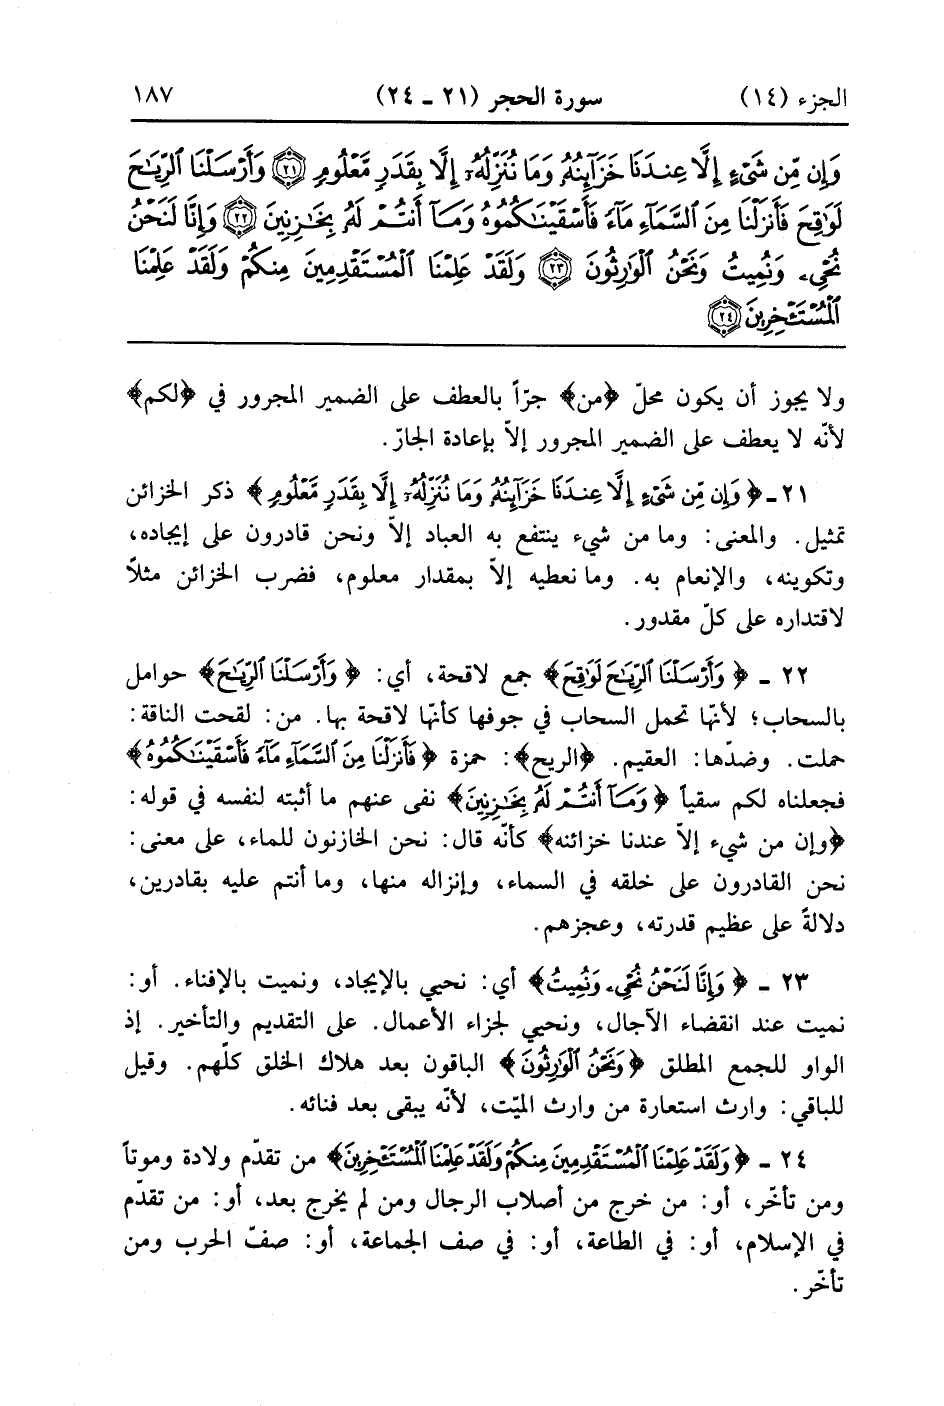 الجزء (١٤) سورة الحجر (٢١ ـ ٢٤) ١٨٧
وَإِن مِّن شَيْءٍ إِلَّا عِندَنَا خَزَآئِنُهُۥ وَمَا نُنَزِّلُهُۥٓ إِلَّا بِقَدَرٍ مَّعْلُومٍ ٢١ وَأَرْسَلْنَا ٱلرِّيَٰحَ
لَوَٰقِحَ فَأَنزَلْنَا مِنَ ٱلسَّمَآءِ مَآءً فَأَسْقَيْنَٰكُمُوهُ وَمَآ أَنتُمْ لَهُۥ بِخَٰزِنِينَ ٢٢ وَإِنَّا لَنَحْنُ
نُحْيِۦ وَنُمِيتُ وَنَحْنُ ٱلْوَٰرِثُونَ ٢٣ وَلَقَدْ عَلِمْنَا ٱلْمُسْتَقْدِمِينَ مِنكُمْ وَلَقَدْ عَلِمْنَا
ٱلْمُسْتَـْٔخِرِينَ ٢٤
ولا يجوز أن يكون محلّ ﴿من﴾ جرّاً بالعطف على الضمير المجرور في ﴿لكم﴾
لأنّه لا يعطف على الضمير المجرور إلاّ بإعادة الجارّ.
٢١ ـ ﴿وَإِن مِّن شَيْءٍ إِلَّا عِندَنَا خَزَآئِنُهُۥ وَمَا نُنَزِّلُهُۥٓ إِلَّا بِقَدَرٍ مَّعْلُومٍ﴾ ذكر الخزائن
تمثيل. والمعنى: وما من شيء ينتفع به العباد إلاّ ونحن قادرون على إيجاده،
وتكوينه، والإنعام به. وما نعطيه إلاّ بمقدار معلوم، فضرب الخزائن مثلاً
لاقتداره على كلّ مقدور.
٢٢ ـ ﴿وَأَرْسَلْنَا ٱلرِّيَٰحَ لَوَٰقِحَ﴾ جمع لاقحة، أي: ﴿وَأَرْسَلْنَا ٱلرِّيَٰحَ﴾ حوامل
بالسحاب؛ لأنّها تحمل السحاب في جوفها كأنّها لاقحة بها. من: لقحت الناقة:
حملت. وضدّها: العقيم. ﴿الريح﴾: حمزة ﴿فَأَنزَلْنَا مِنَ ٱلسَّمَآءِ مَآءً فَأَسْقَيْنَٰكُمُوهُ﴾
فجعلناه لكم سقياً ﴿وَمَآ أَنتُمْ لَهُۥ بِخَٰزِنِينَ﴾ نفى عنهم ما أثبته لنفسه في قوله:
﴿وإن من شيء إلاّ عندنا خزائنه﴾ كأنّه قال: نحن الخازنون للماء، على معنى:
نحن القادرون على خلقه في السماء، وإنزاله منها، وما أنتم عليه بقادرين،
دلالةً على عظيم قدرته، وعجزهم.
٢٣ ـ ﴿وَإِنَّا لَنَحْنُ نُحْيِۦ وَنُمِيتُ﴾ أي: نحيي بالإيجاد، ونميت بالإفناء. أو:
نميت عند انقضاء الآجال، ونحيي لجزاء الأعمال. على التقديم والتأخير. إذ
الواو للجمع المطلق ﴿وَنَحْنُ ٱلْوَٰرِثُونَ﴾ الباقون بعد هلاك الخلق كلّهم. وقيل
للباقي: وارث استعارة من وارث الميّت، لأنّه يبقى بعد فنائه.
٢٤ ـ ﴿وَلَقَدْ عَلِمْنَا ٱلْمُسْتَقْدِمِينَ مِنكُمْ وَلَقَدْ عَلِمْنَا ٱلْمُسْتَـْٔخِرِينَ﴾ من تقدّم ولادة وموتاً
ومن تأخّر، أو: من خرج من أصلاب الرجال ومن لم يخرج بعد، أو: من تقدّم
في الإسلام، أو: في الطاعة، أو: في صف الجماعة، أو: صفّ الحرب ومن
تأخّر.